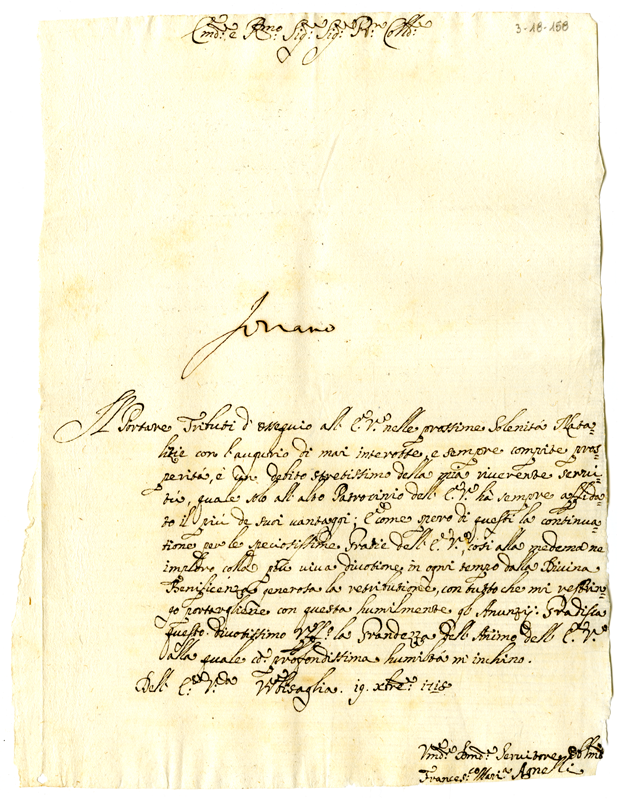 3-18-158
Em̃o: e Rmo Sig:r Sig:r Pr̃on Coll:mo
Il Portare Tributi d'ossequio all' E. V. nelle prossime Solenità Nata-
litie con l'augurio di mai interotte, e sempre compite pros-
perità, è un debito strettissimo della mia riverente Servi-
tù, quale solo all'alto Patrocinio dell' E. V. ha sempre affida-
to il più de suoi vantaggi; E come spero di questi la continua-
tione per le speciosissime Gratie dell' E. V. così alla medema ne
imploro colla più viva divotione, in ogni tempo dalla Divina
Beneficenza generosa la retributione, con tutto che mi restrin-
go portargliene con questa humilmente gli Anunzij. Gradisca
questo divotissimo la Grandezza dell' Animo dell' E. V.
alla quale co profondissima humiltà m'inchino.
Dell' E. V. Urbisaglia. 19. Xbre 1718
Servitore
Frances:co Maria Agnelli